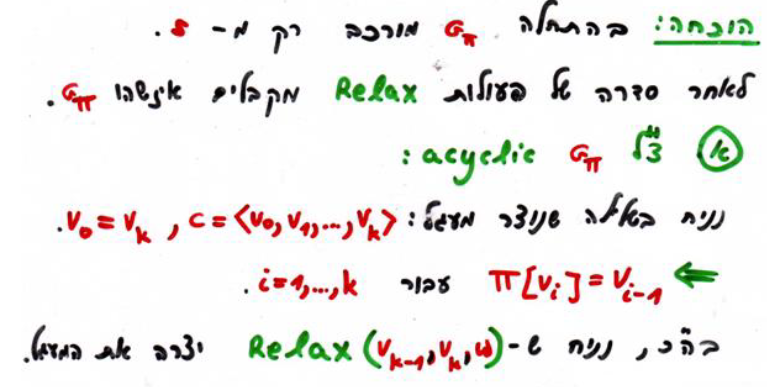 הוכחה: בהתחלה Gπ מורכב רק מ- s.
לאחר סדרה של פעולות Relax מקבלים איזשהו Gπ.
(א) צ"ל Gπ acyclic:
נניח בשלילה שנוצר מעגל: c = <v₀, v₁, ..., vₖ>, v₀ = vₖ.
⇐ π[vᵢ] = vᵢ₋₁ עבור i=1,...,k.
בה"כ, נניח ש- Relax(vₖ₋₁, vₖ, w) יצרה את המעגל.